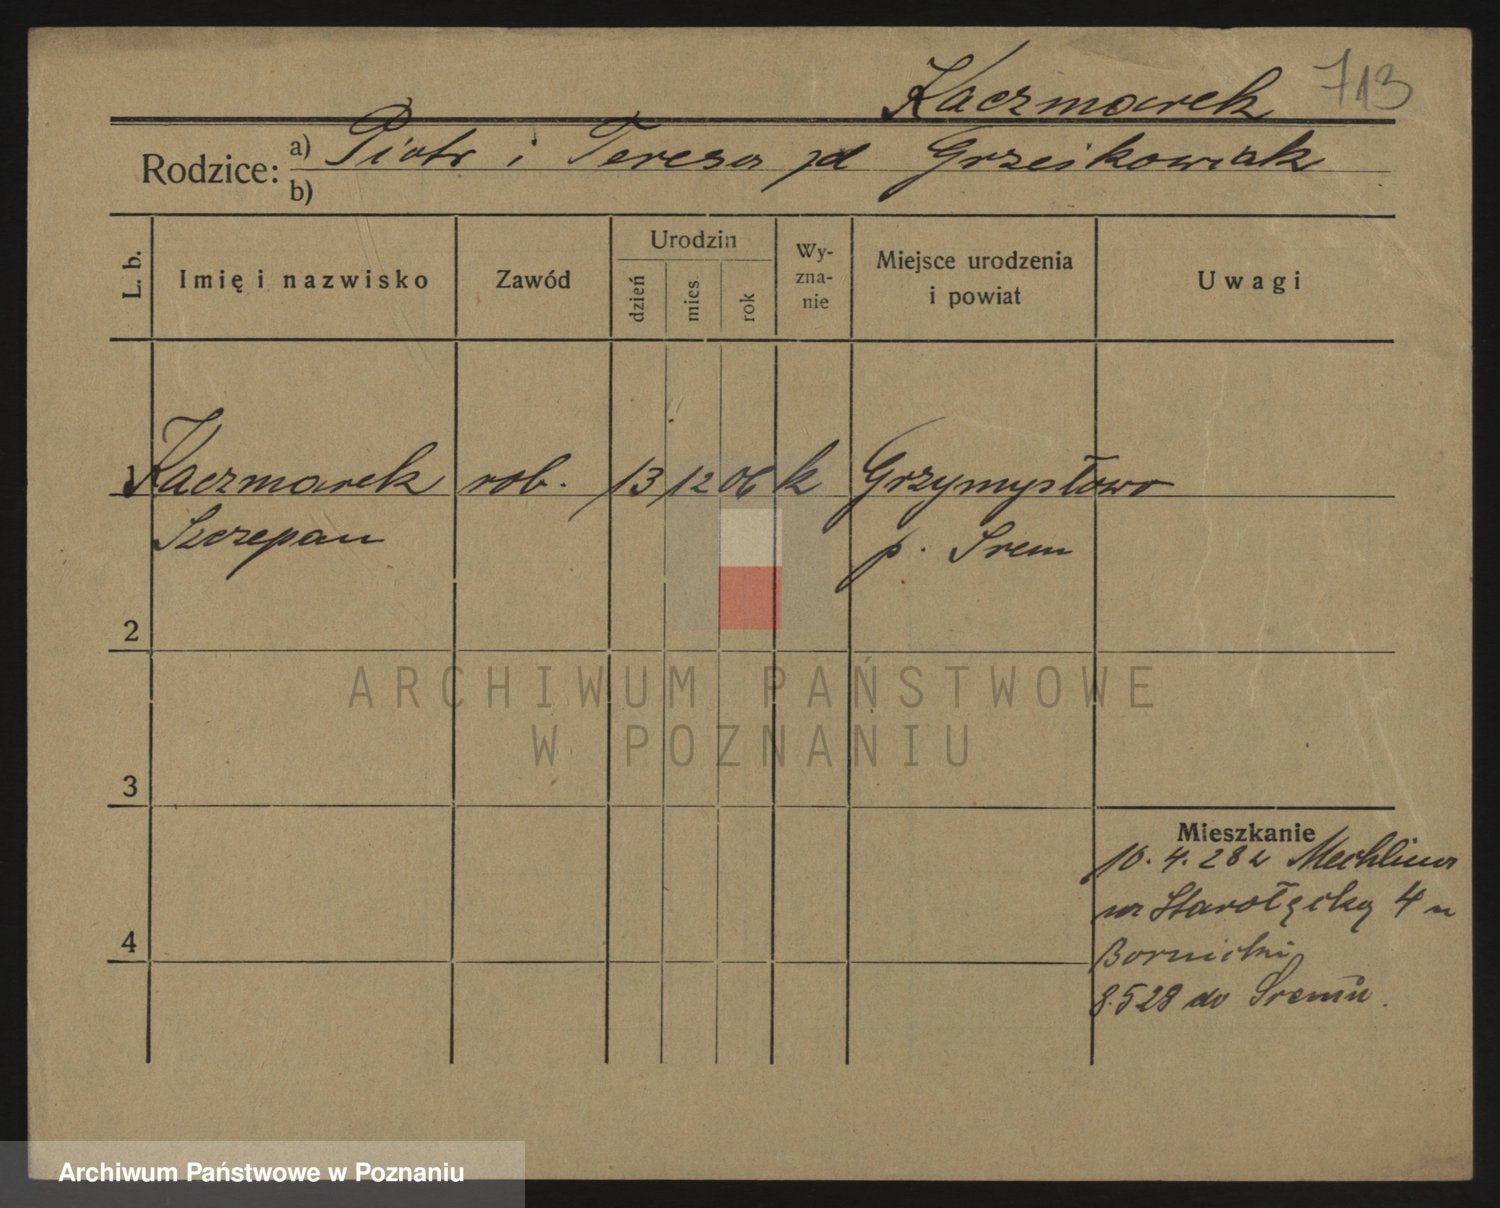 Kaczmarek 713
Rodzice: a) Piotr i Teresa zd Grześkowiak
b)
L. b. Imię i nazwisko Zawód Urodzin dzień mies. rok Wy-zna-nie Miejsce urodzenia i powiat Uwagi
1 Kaczmarek rob. 13 12 06 k Grzymysławo
Szczepan p. Śrem
2
ARCHIWUM PAŃSTWOWE
W POZNANIU
3
Mieszkanie
10. 4. 28 z Mechlina
na Starołęcką 4 u
4
8.5 28 do Śremu.
Archiwum Państwowe w Poznaniu